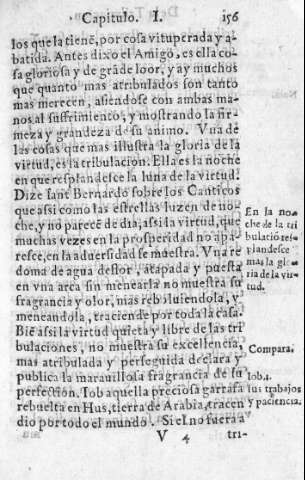 Capitulo. I. 156
los que la tienẽ, por cosa vituperada y a-
batida. Antes dixo el Amigo, es ella co-
sa gloriosa y de grãde loor, y ay muchos
que quanto mas atribulados son tanto
mas merecen, asiendose con ambas ma-
nos al suffrimiento, y mostrando la fir-
meza y grandeza de su animo. Vna de
las cosas que mas illustra la gloria de la
virtud, es la tribulacion. Ella es la noche
en que resplandesce la luna de la virtud.
Dize sant Bernardo sobre los Canticos
que assi como las estrellas luzen de no-
che, y no parecẽ de dia, assi la virtud, que
muchas vezes en la prosperidad no apa-
resce, en la aduersidad se muestra. Vna re
doma de agua de flor, atapada y puesta
en vna arca sin menearla no muestra su
fragrancia y olor, mas reboluiendola, y
meneandola, traciende por toda la casa.
Biẽ assi la virtud quieta y libre de las tri
bulaciones, no muestra su excellencia,
mas atribulada y perseguida declara y
publica la marauillosa fragrancia de su
perfection. Iob aquella preciosa garrafa
rebuelta en Hus, tierra de Arabia, tracen
dio por todo el mundo. Si el no fuera a
V 4 tri-
En la no-
che de la tri
bulació res-
plandesce
mas la glo-
ria de la vir-
tud.
Compara.
Iob. 1.
sus trabajos
y paciencia.